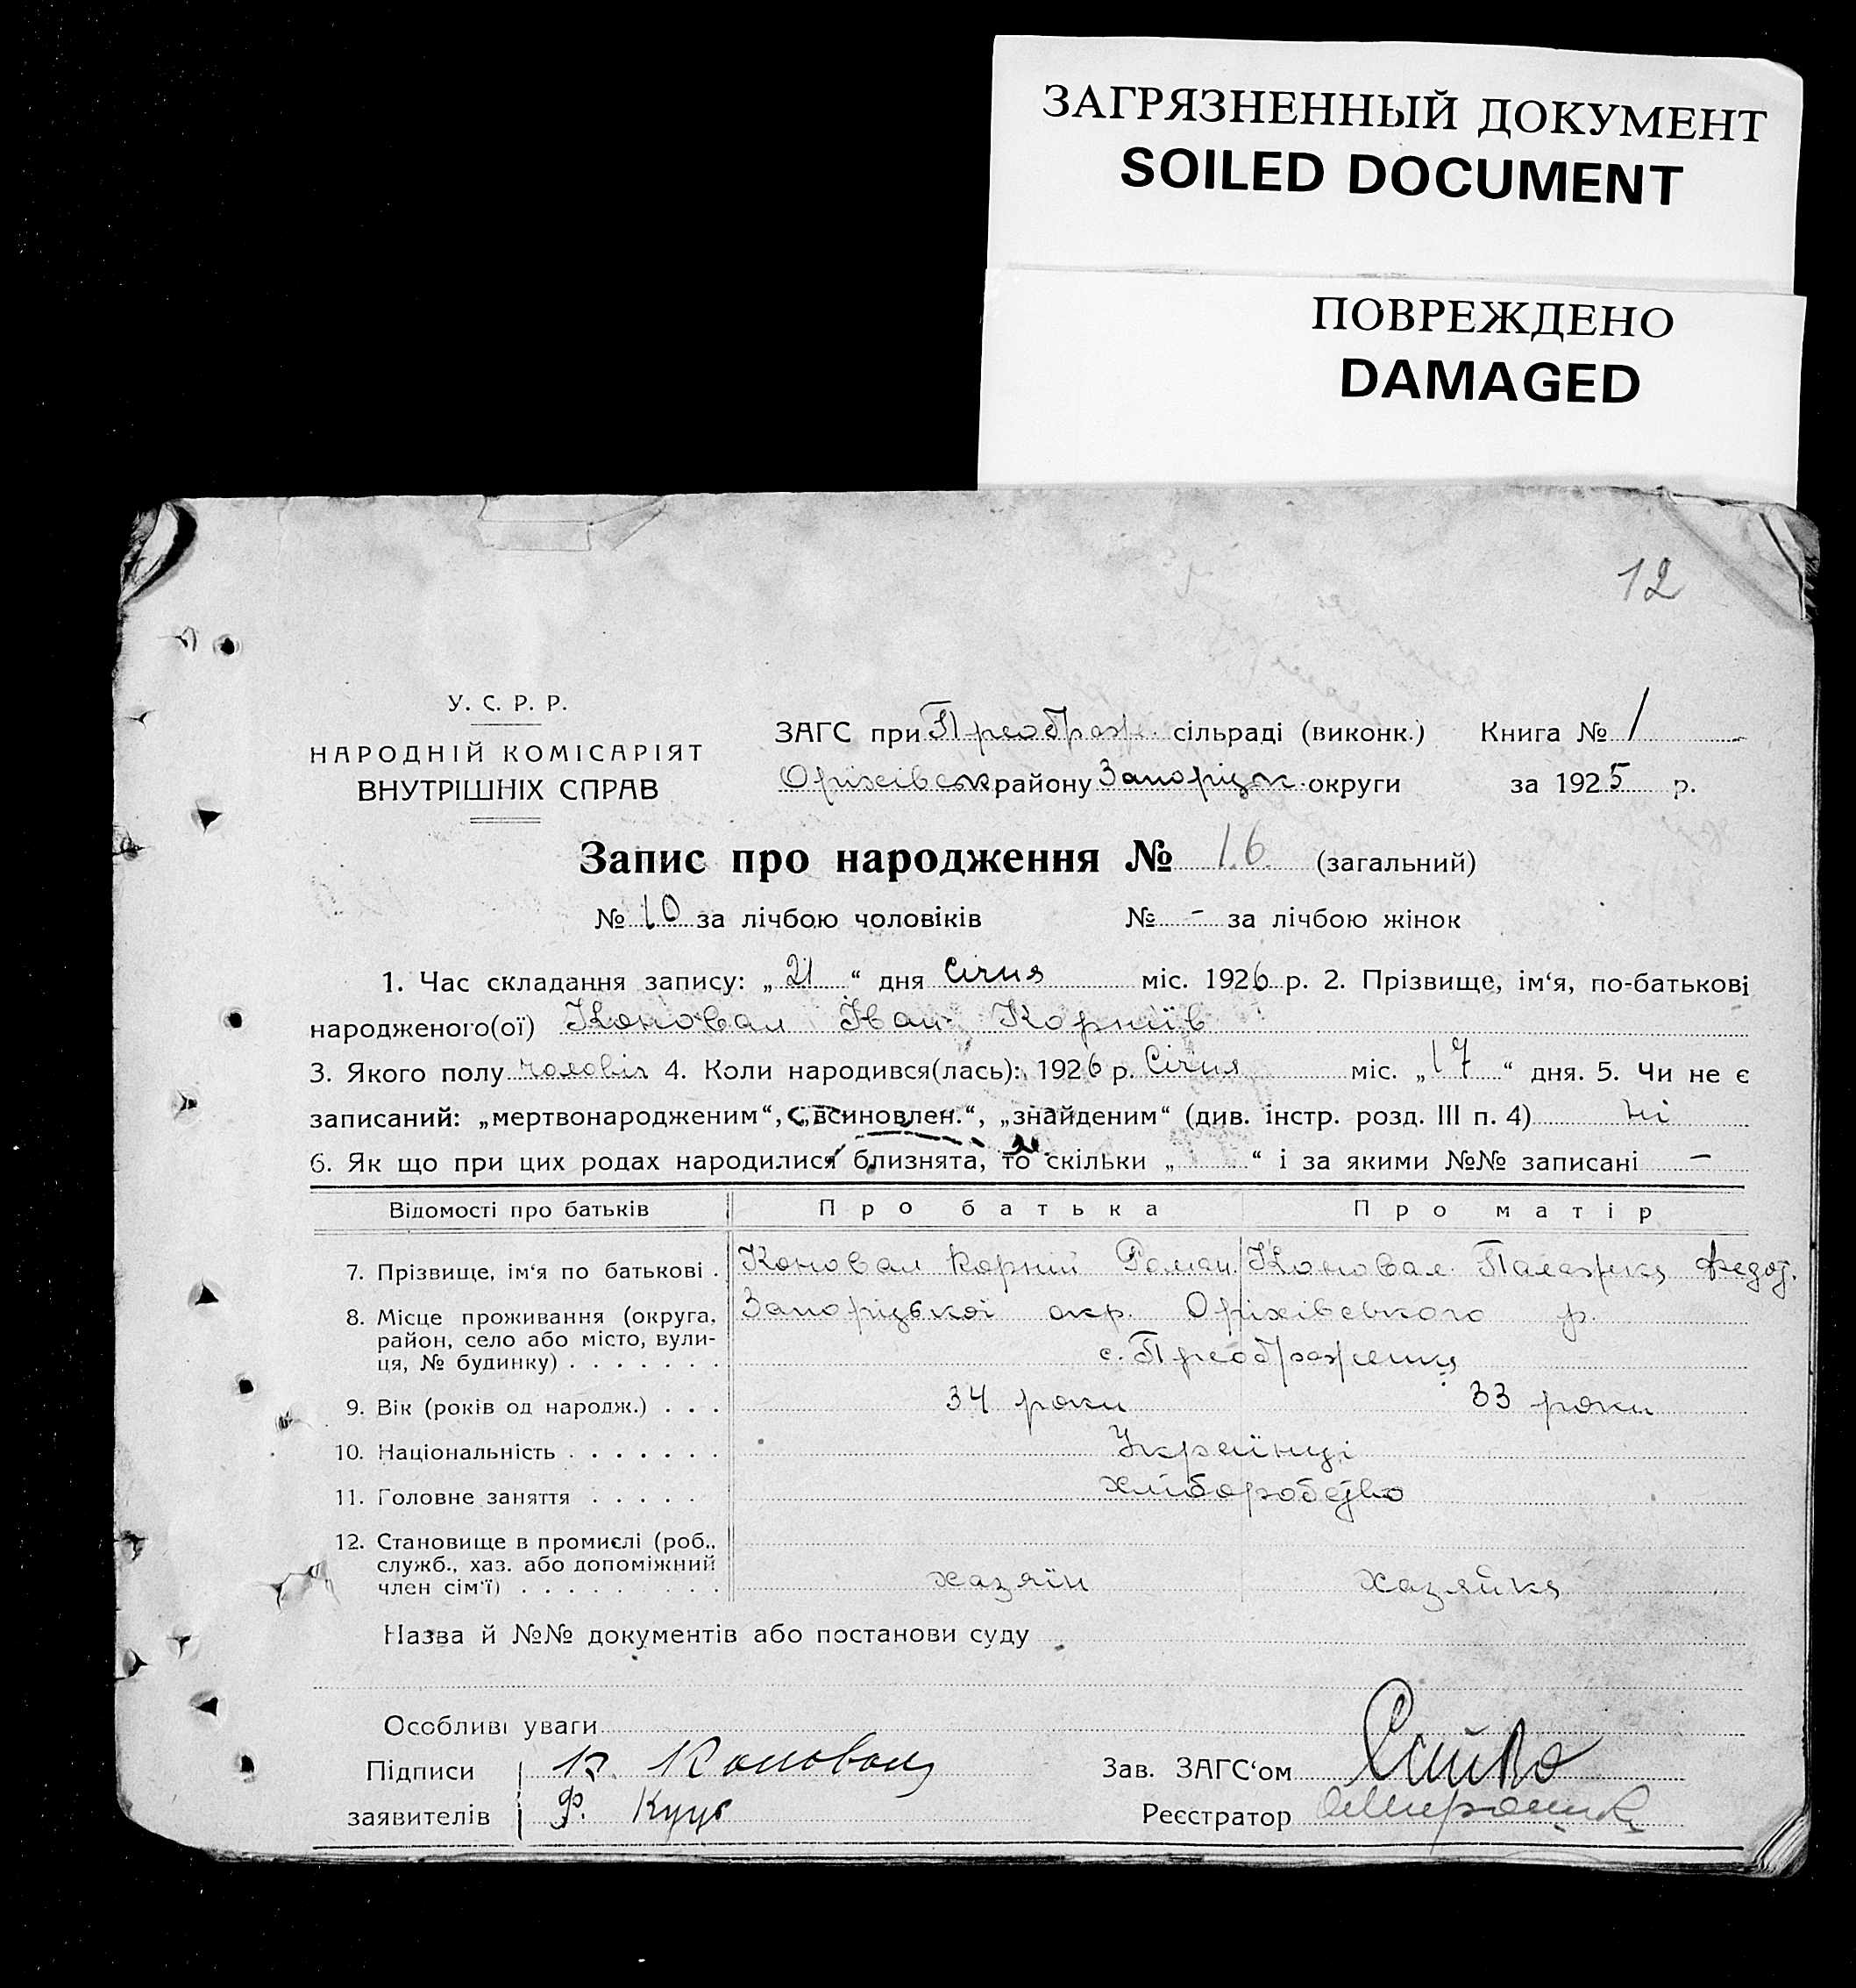 ЗАГРЯЗНЕННЫЙ ДОКУМЕНТ
SOILED DOCUMENT
ПОВРЕЖДЕНО
DAMAGED
12
У. С. Р. Р.
НАРОДНІЙ КОМІСАРІЯТ
ВНУТРІШНІХ СПРАВ
ЗАГС при Преображ. сільраді (виконк.) Книга № 1
Оріхівськ району Запоріцьк. округи за 1925 р.
Запис про народження № 16 (загальний)
№ 10 за лічбою чоловіків № - за лічбою жінок
1. Час складання запису: „ 21 “ дня Січня міс. 1926 р. 2. Прізвище, ім‘я, по-батькові
народженого(ої) Коновал Іван Корніїв
3. Якого полу чоловіч 4. Коли народився(лась): 1926 р. Січня міс. „ 17 “ дня. 5. Чи не є
записаний: „мертвонародженим“, „всиновлен.“, „знайденим“ (див. інстр. розд. III п. 4) ні
6. Як що при цих родах народилися близнята, то скільки „ “ і за якими №№ записані -
Відомості про батьків Про батька Про матір
7. Прізвище, ім‘я по батькові . Коновал Корній Роман. Коновал Палажка Федот.
8. Місце проживання (округа, Запоріцької окр. Оріхівського р.
район, село або місто, вули-
ця, № будинку) . . . . . . . с. Преображенка
9. Вік (років од народж.) . . . 34 роки 33 роки
10. Національність . . . . . . . Українці
11. Головне заняття . . . . . Хліборобство
12. Становище в промислі (роб.,
служб., хаз. або допоміжний
член сім‘ї) . . . . . . . . . хазяїн хазяйка
Назва й №№ документів або постанови суду
Особливі уваги
Підписи К. Коновал Зав. ЗАГС‘ом
заявителів Ф. Куць Реєстратор